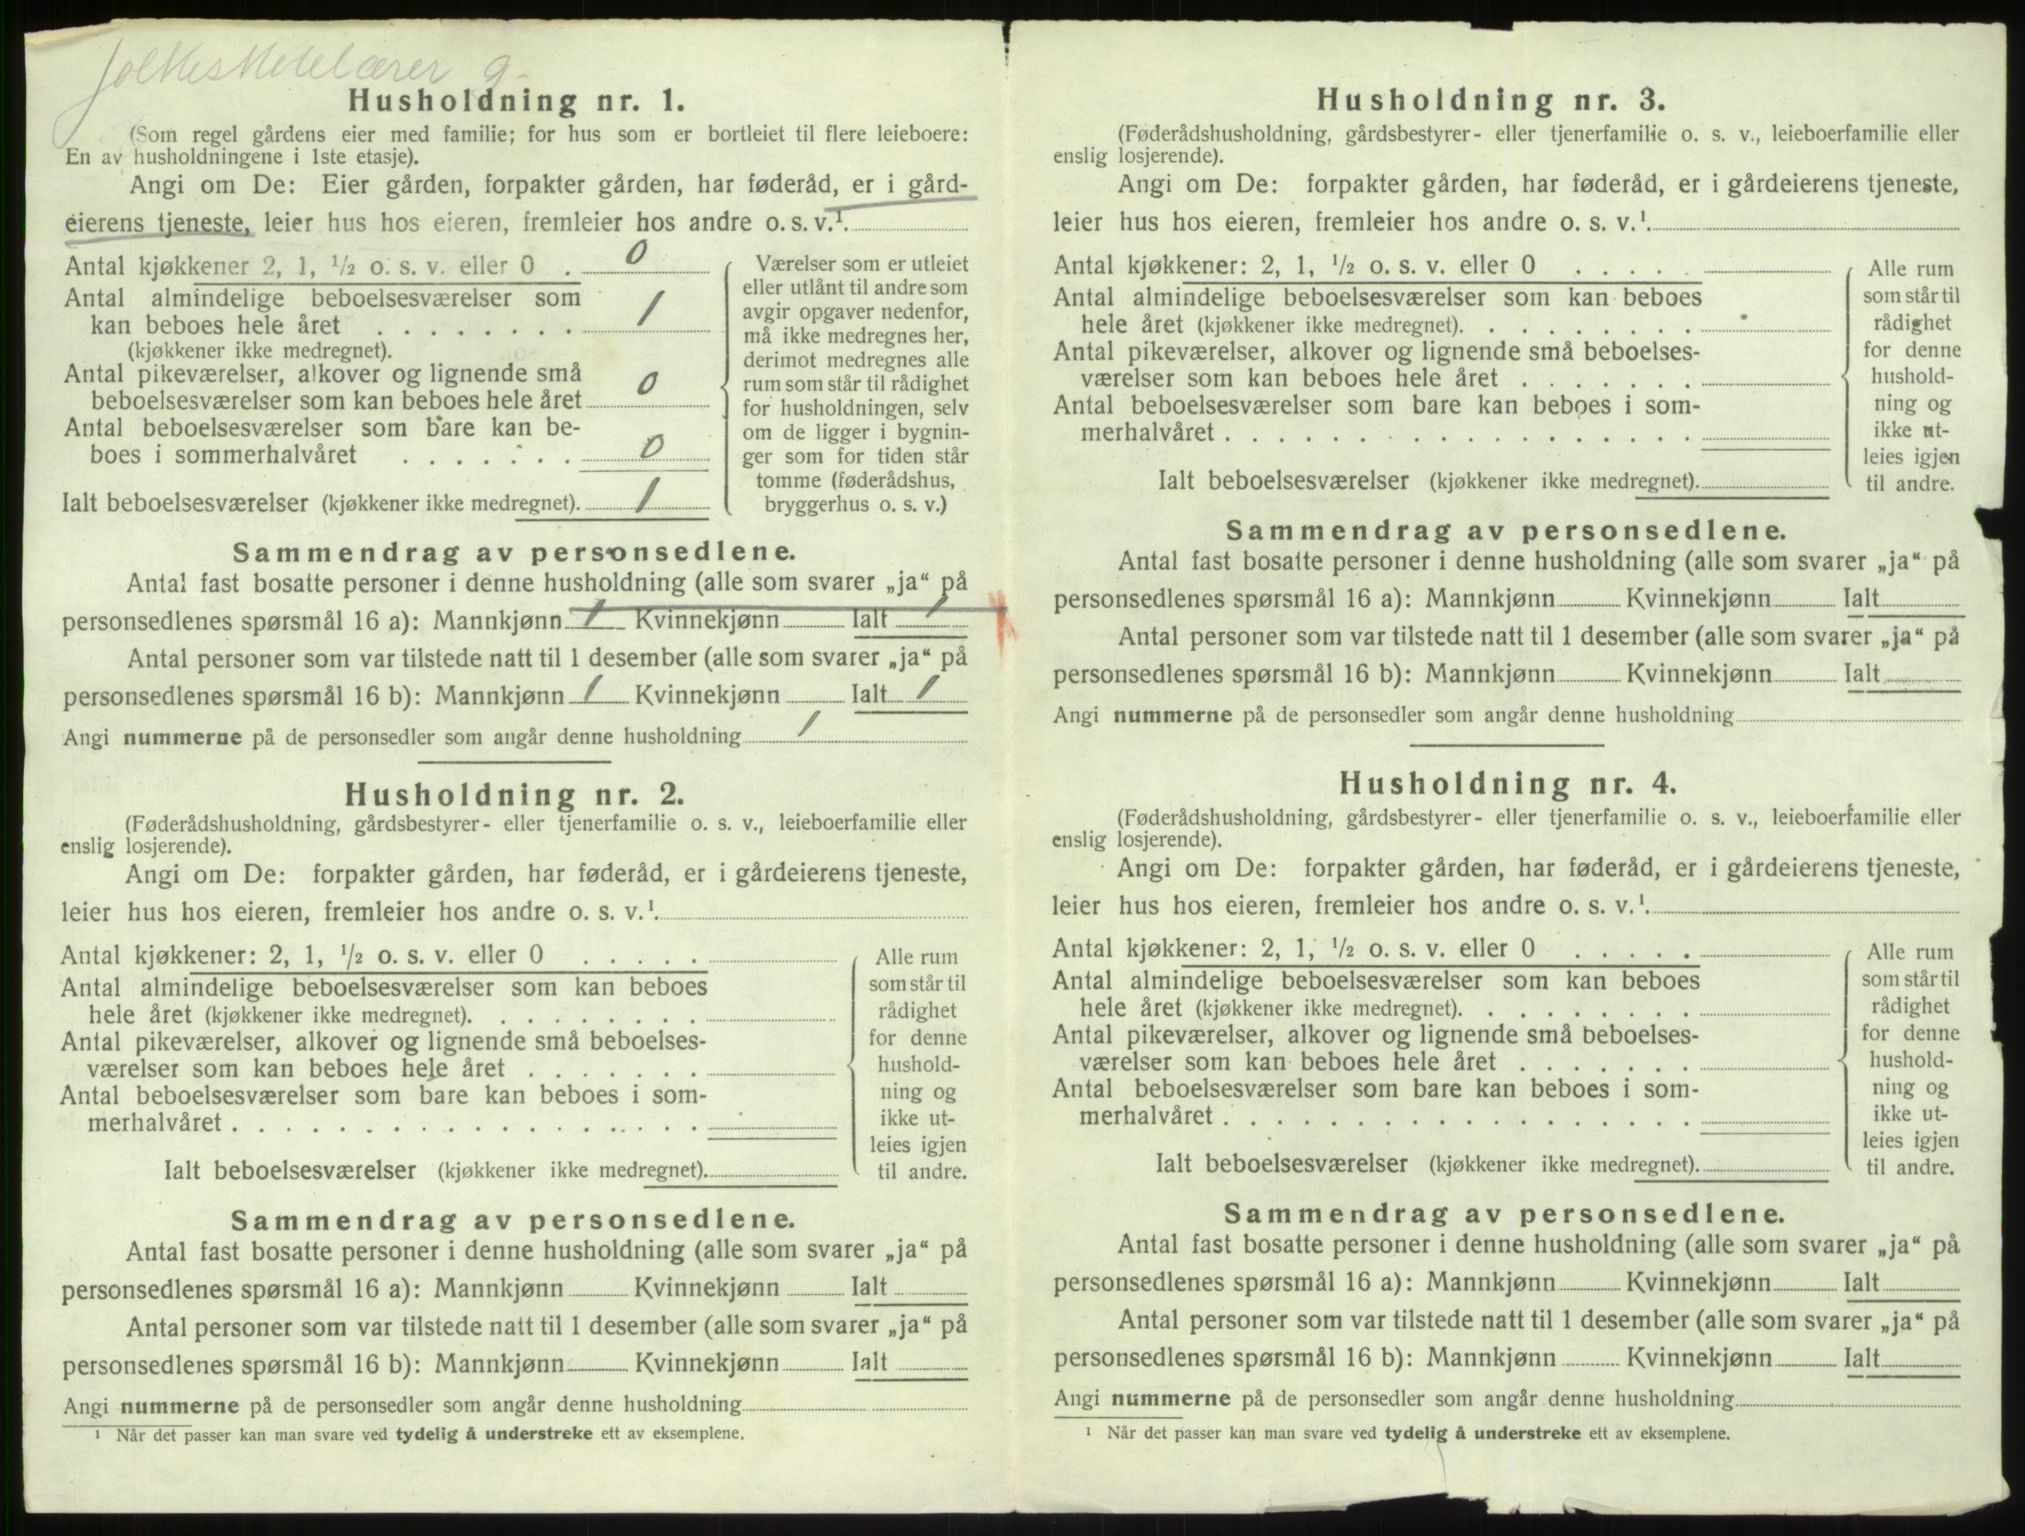 folkeskolelærer g.
Husholdning nr. 1.
(Som regel gårdens eier med familie; for hus som er bortleiet til flere leieboere:
En av husholdningene i 1ste etasje).
Angi om De: Eier gården, forpakter gården, har føderåd, er i gård-
eierens tjeneste, leier hus hos eieren, fremleier hos andre o. s. v.¹.
Antal kjøkkener 2, 1, ½ o. s. v. eller 0 . 0
Antal almindelige beboelsesværelser som
kan beboes hele året . . . . . . . . 1
(kjøkkener ikke medregnet).
Antal pikeværelser, alkover og lignende små
beboelsesværelser som kan beboes hele året 0
Antal beboelsesværelser som bare kan be-
boes i sommerhalvåret . . . . . . . 0
Ialt beboelsesværelser (kjøkkener ikke medregnet). 1
Værelser som er utleiet
eller utlånt til andre som
avgir opgaver nedenfor,
må ikke medregnes her,
derimot medregnes alle
rum som står til rådighet
for husholdningen, selv
om de ligger i bygnin-
ger som for tiden står
tomme (føderådshus,
bryggerhus o. s. v.)
Sammendrag av personsedlene.
Antal fast bosatte personer i denne husholdning (alle som svarer „ja“ på
personsedlenes spørsmål 16 a): Mannkjønn 1 Kvinnekjønn Ialt 1
Antal personer som var tilstede natt til 1 desember (alle som svarer „ja“ på
personsedlenes spørsmål 16 b): Mannkjønn 1 Kvinnekjønn Ialt 1
Angi nummerne på de personsedler som angår denne husholdning 1
Husholdning nr. 2.
(Føderådshusholdning, gårdsbestyrer- eller tjenerfamilie o. s. v., leieboerfamilie eller
enslig losjerende).
Angi om De: forpakter gården, har føderåd, er i gårdeierens tjeneste,
leier hus hos eieren, fremleier hos andre o. s. v.¹.
Antal kjøkkener: 2, 1, ½ o. s. v. eller 0 . . . . .
Antal almindelige beboelsesværelser som kan beboes
hele året (kjøkkener ikke medregnet). . . . . . . . .
Antal pikeværelser, alkover og lignende små beboelses-
værelser som kan beboes hele året . . . . . . .
Antal beboelsesværelser som bare kan beboes i som-
merhalvåret . . . . . . . . . . . . . . . . . .
Ialt beboelsesværelser (kjøkkener ikke medregnet).
Alle rum
som står til
rådighet
for denne
hushold-
ning og
ikke ut-
leies igjen
til andre.
Sammendrag av personsedlene.
Antal fast bosatte personer i denne husholdning (alle som svarer „ja“ på
personsedlenes spørsmål 16 a): Mannkjønn Kvinnekjønn Ialt
Antal personer som var tilstede natt til 1 desember (alle som svarer „ja“ på
personsedlenes spørsmål 16 b): Mannkjønn Kvinnekjønn Ialt
Angi nummerne på de personsedler som angår denne husholdning
¹ Når det passer kan man svare ved tydelig å understreke ett av eksemplene.
Husholdning nr. 3.
(Føderådshusholdning, gårdsbestyrer- eller tjenerfamilie o. s. v., leieboerfamilie eller
enslig losjerende).
Angi om De: forpakter gården, har føderåd, er i gårdeierens tjeneste,
leier hus hos eieren, fremleier hos andre o. s. v.¹.
Antal kjøkkener: 2, 1, ½ o. s. v. eller 0 . . . . .
Antal almindelige beboelsesværelser som kan beboes
hele året (kjøkkener ikke medregnet). . . . . . . . .
Antal pikeværelser, alkover og lignende små beboelses-
værelser som kan beboes hele året . . . . . . .
Antal beboelsesværelser som bare kan beboes i som-
merhalvåret . . . . . . . . . . . . . . . . . .
Ialt beboelsesværelser (kjøkkener ikke medregnet).
Alle rum
som står til
rådighet
for denne
hushold-
ning og
ikke ut-
leies igjen
til andre.
Sammendrag av personsedlene.
Antal fast bosatte personer i denne husholdning (alle som svarer „ja“ på
personsedlenes spørsmål 16 a): Mannkjønn Kvinnekjønn Ialt
Antal personer som var tilstede natt til 1 desember (alle som svarer „ja“ på
personsedlenes spørsmål 16 b): Mannkjønn Kvinnekjønn Ialt
Angi nummerne på de personsedler som angår denne husholdning
Husholdning nr. 4.
(Føderådshusholdning, gårdsbestyrer- eller tjenerfamilie o. s. v., leieboerfamilie eller
enslig losjerende).
Angi om De: forpakter gården, har føderåd, er i gårdeierens tjeneste,
leier hus hos eieren, fremleier hos andre o. s. v.¹.
Antal kjøkkener: 2, 1, ½ o. s. v. eller 0 . . . . .
Antal almindelige beboelsesværelser som kan beboes
hele året (kjøkkener ikke medregnet). . . . . . . . .
Antal pikeværelser, alkover og lignende små beboelses-
værelser som kan beboes hele året . . . . . . .
Antal beboelsesværelser som bare kan beboes i som-
merhalvåret . . . . . . . . . . . . . . . . . .
Ialt beboelsesværelser (kjøkkener ikke medregnet).
Alle rum
som står til
rådighet
for denne
hushold-
ning og
ikke ut-
leies igjen
til andre.
Sammendrag av personsedlene.
Antal fast bosatte personer i denne husholdning (alle som svarer „ja“ på
personsedlenes spørsmål 16 a): Mannkjønn Kvinnekjønn Ialt
Antal personer som var tilstede natt til 1 desember (alle som svarer „ja“ på
personsedlenes spørsmål 16 b): Mannkjønn Kvinnekjønn Ialt
Angi nummerne på de personsedler som angår denne husholdning
¹ Når det passer kan man svare ved tydelig å understreke ett av eksemplene.